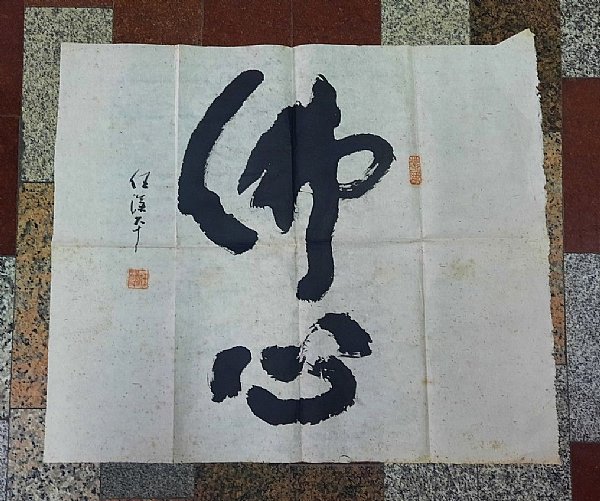 佛心
任漢平